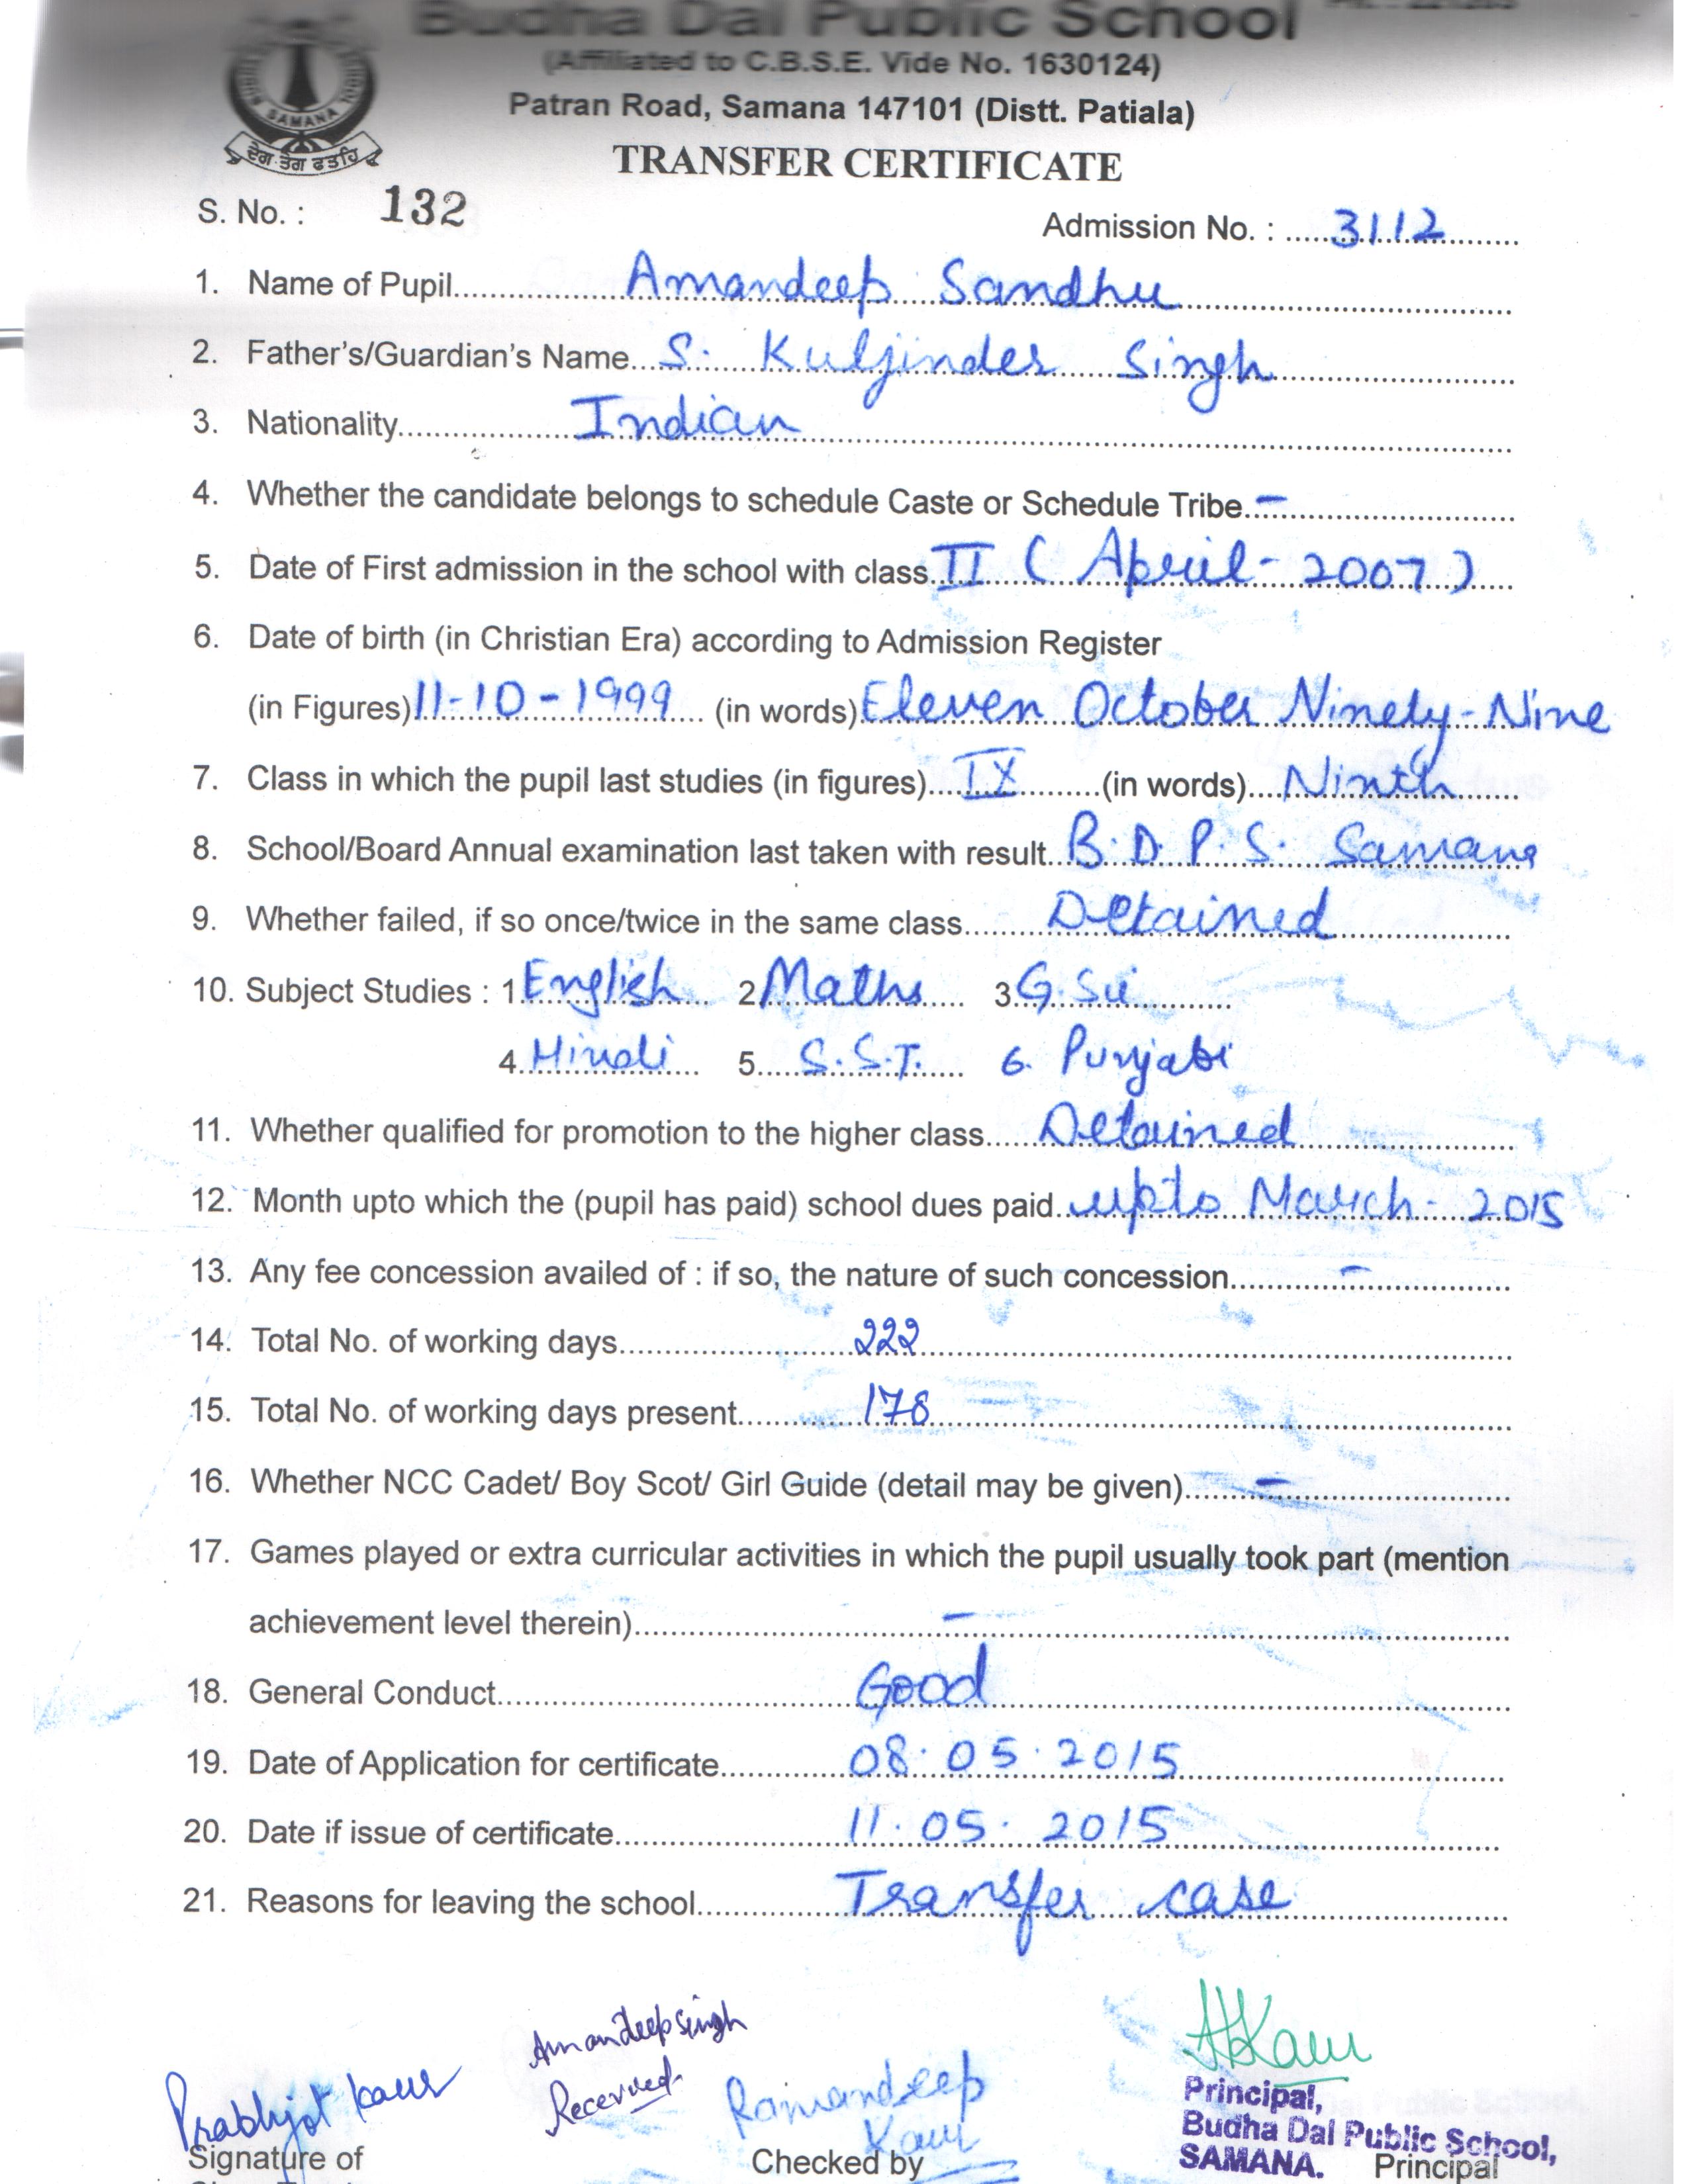 Budha Dal Public School
(Affiliated to C.B.S.E. Vide No. 1630124)
Patran Road, Samana 147101 (Distt. Patiala)
SAMANA
ਦੇਗ ਤੇਗ ਫਤਹਿ
TRANSFER CERTIFICATE
S. No. : 132 Admission No. : 3112
1. Name of Pupil Amandeep Sandhu
2. Father's/Guardian's Name S. Kuljinder Singh
3. Nationality Indian
4. Whether the candidate belongs to schedule Caste or Schedule Tribe -
5. Date of First admission in the school with class II (April-2007)
6. Date of birth (in Christian Era) according to Admission Register
(in Figures) 11-10-1999 (in words) Eleven October Ninety-Nine
7. Class in which the pupil last studies (in figures) IX (in words) Ninth
8. School/Board Annual examination last taken with result B.D.P.S. Samana
9. Whether failed, if so once/twice in the same class Detained
10. Subject Studies : 1 English 2 Maths 3 G.Sci
4. Hindi 5. S.S.T. 6. Punjabi
11. Whether qualified for promotion to the higher class Detained
12. Month upto which the (pupil has paid) school dues paid upto March-2015
13. Any fee concession availed of : if so, the nature of such concession -
14. Total No. of working days 222
15. Total No. of working days present 178
16. Whether NCC Cadet/ Boy Scot/ Girl Guide (detail may be given) -
17. Games played or extra curricular activities in which the pupil usually took part (mention
achievement level therein) -
18. General Conduct Good
19. Date of Application for certificate 08.05.2015
20. Date if issue of certificate 11.05.2015
21. Reasons for leaving the school Transfer case
Amandeep Singh
Received
Prabhjot Kaur
Ramandeep
Kaur
Kaur
Principal,
Budha Dal Public School,
SAMANA.
Signature of Checked by Principal